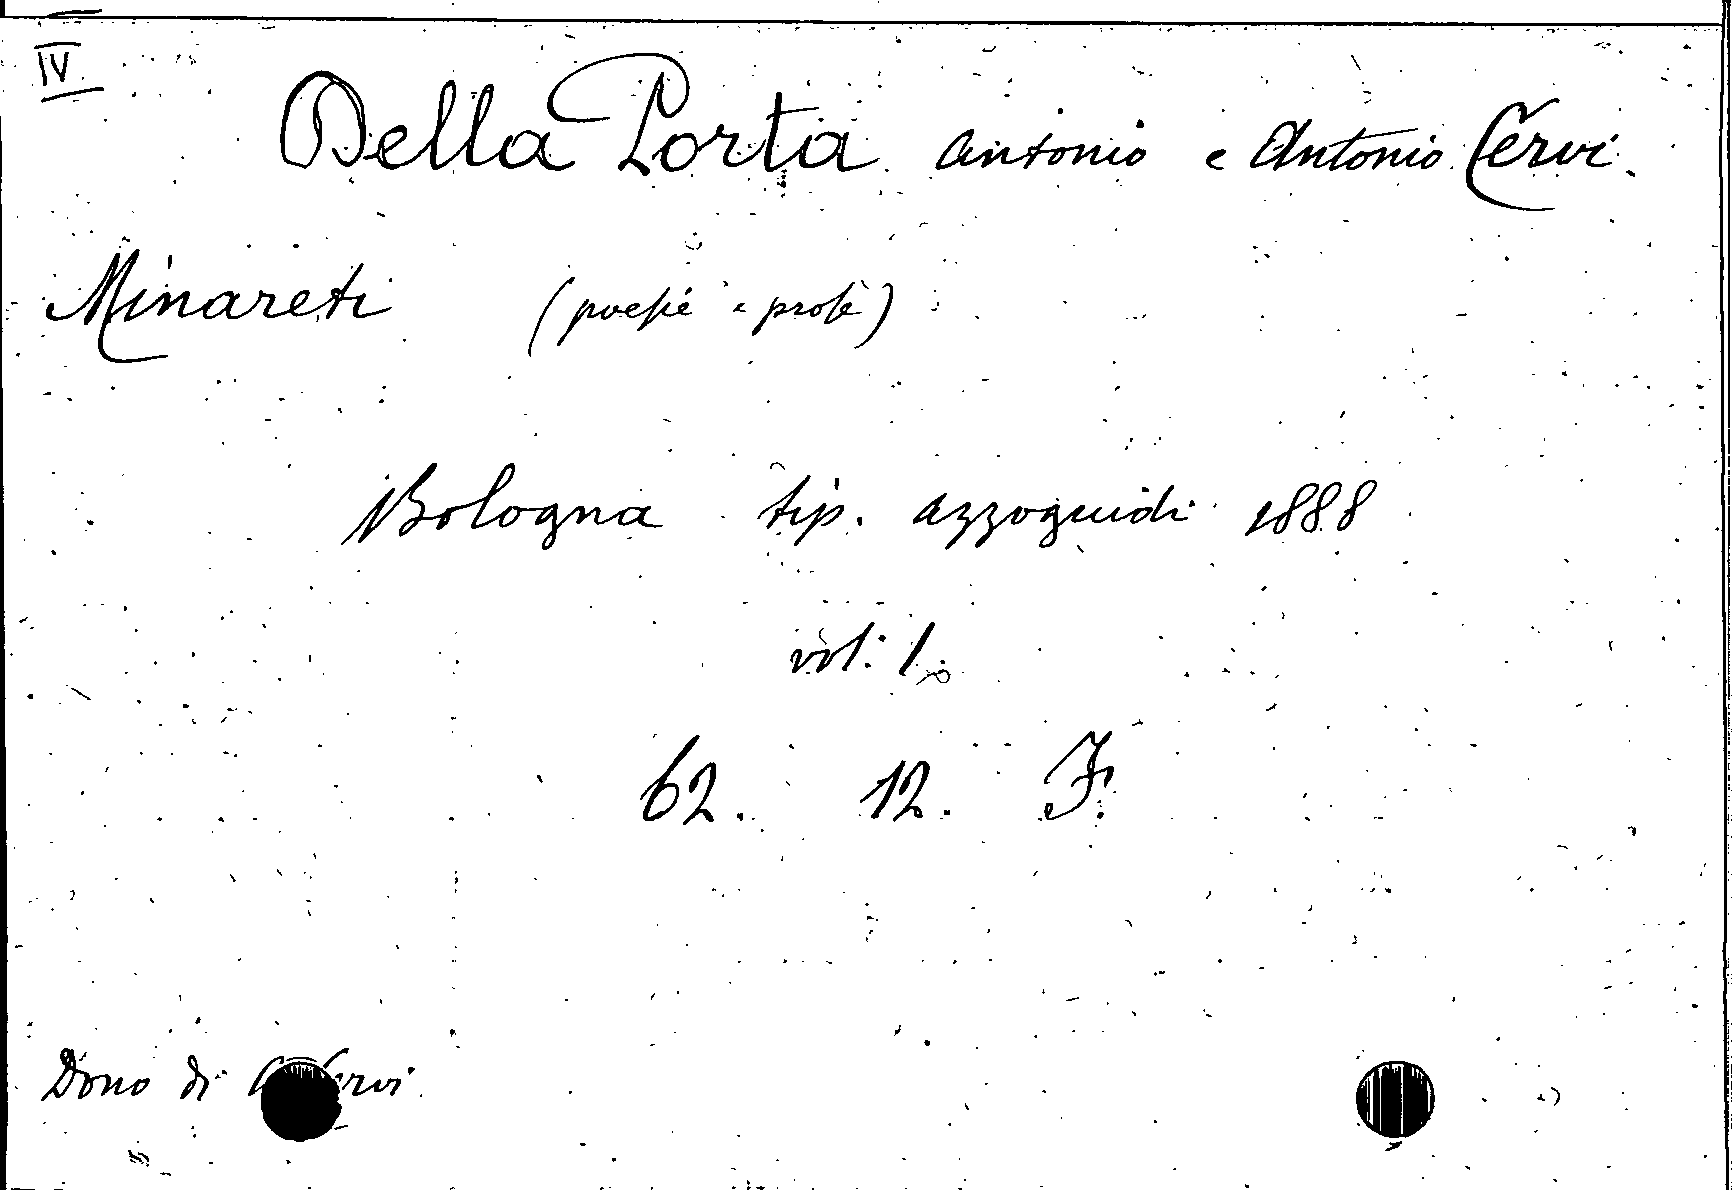 IV
Della Porta Antonio e Antonio Cervi.
Minareti (poesie e prose)
Bologna tip. Azzoguidi 1888
vol: 1.
62. 12. F.
Dono di Cervi